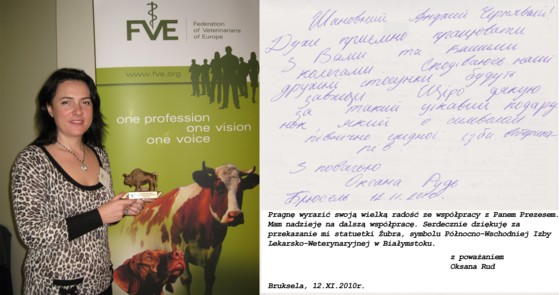 FVE
Federation
of Veterinarians
of Europe
www.fve.org
one profession
one vision
one voice
Шановний Анджей Чернявський!
Дуже приємно працювати
з Вами та Вашими
колегами. Сподіваюсь наші
дружні стосунки будуть
завжди. Щиро дякую
за такий цікавий подару-
нок який є символом
північно східної
З повагою
Оксана Рудь
Брюсель 12.11.2010.
Pragnę wyrazić swoją wielką radość ze współpracy z Panem Prezesem.
Mam nadzieję na dalszą współpracę. Serdecznie dziękuję za
przekazanie mi statuetki Żubra, symbolu Północno-Wschodniej Izby
Lekarsko-Weterynaryjnej w Białymstoku.
z poważaniem
Oksana Rud
Bruksela, 12.XI.2010r.